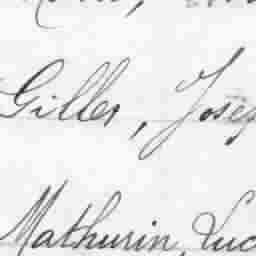 Gilles, Josep
Mathurin, Luc